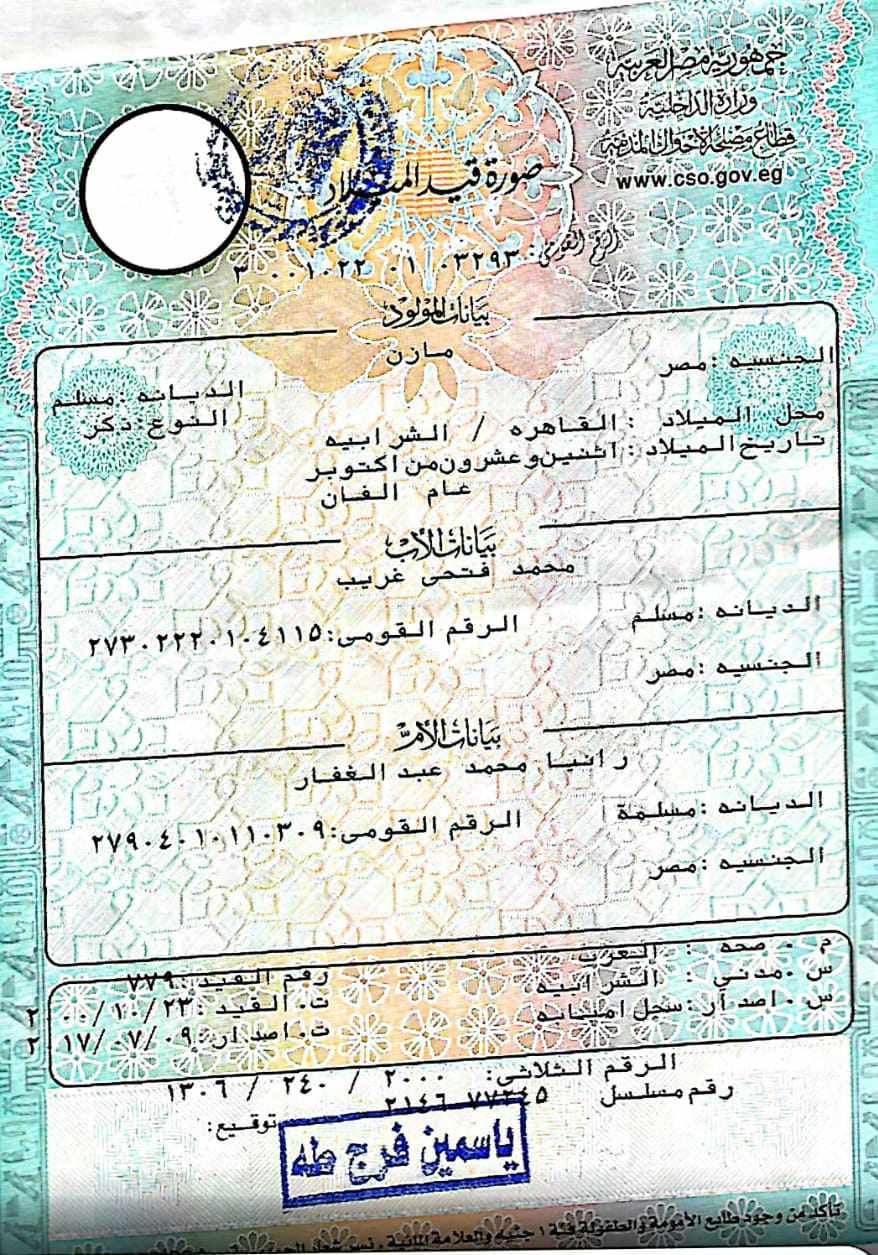 جمهورية مصر العربية
وزارة الداخلية
قطاع مصلحة الأحوال المدنية
www.cso.gov.eg
صورة قيد الميلاد
الرقم القومى: ٣ ٠٠١٠٢٢ ٠١ ٠٣٢٩٣
بيانات المولود
مازن
الجنسيه :مصر
الديانه :مسلم
النوع:ذكر
محل الميلاد : القاهره / الشرابيه
تاريخ الميلاد : اثنين وعشرون من اكتوبر
عام الفان
بيانات الأب
محمد فتحى غريب
الديانه :مسلم
الرقم القومى:٢٧٣٠٢٢٢٠١٠٤١١٥
الجنسيه :مصر
بيانات الأم
رانيا محمد عبد الغفار
الديانه :مسلمة
الرقم القومى:٢٧٩٠٤٠١٠١١٠٣٠٩
الجنسيه :مصر
م . صحه : العزب
رقم القيد :٧٧٩
س .مدني : الشرابيه
ت. القيد :٢٠٠٠/١٠/٢٣
س . اصدار :سجل اميانه
ت. اصدار :٢٠١٧/٠٧/٠٩
الرقم الثلاثى: ٢٠٠٠ / ٢٤٠ / ١٣٠٦
رقم مسلسل ٧٧٢٤٥ ٢١٤٦
توقيع:
ياسمين فرج طه
تأكد من وجود طابع الأمومة والطفولة فئة ١ جنيه والعلامة المائية